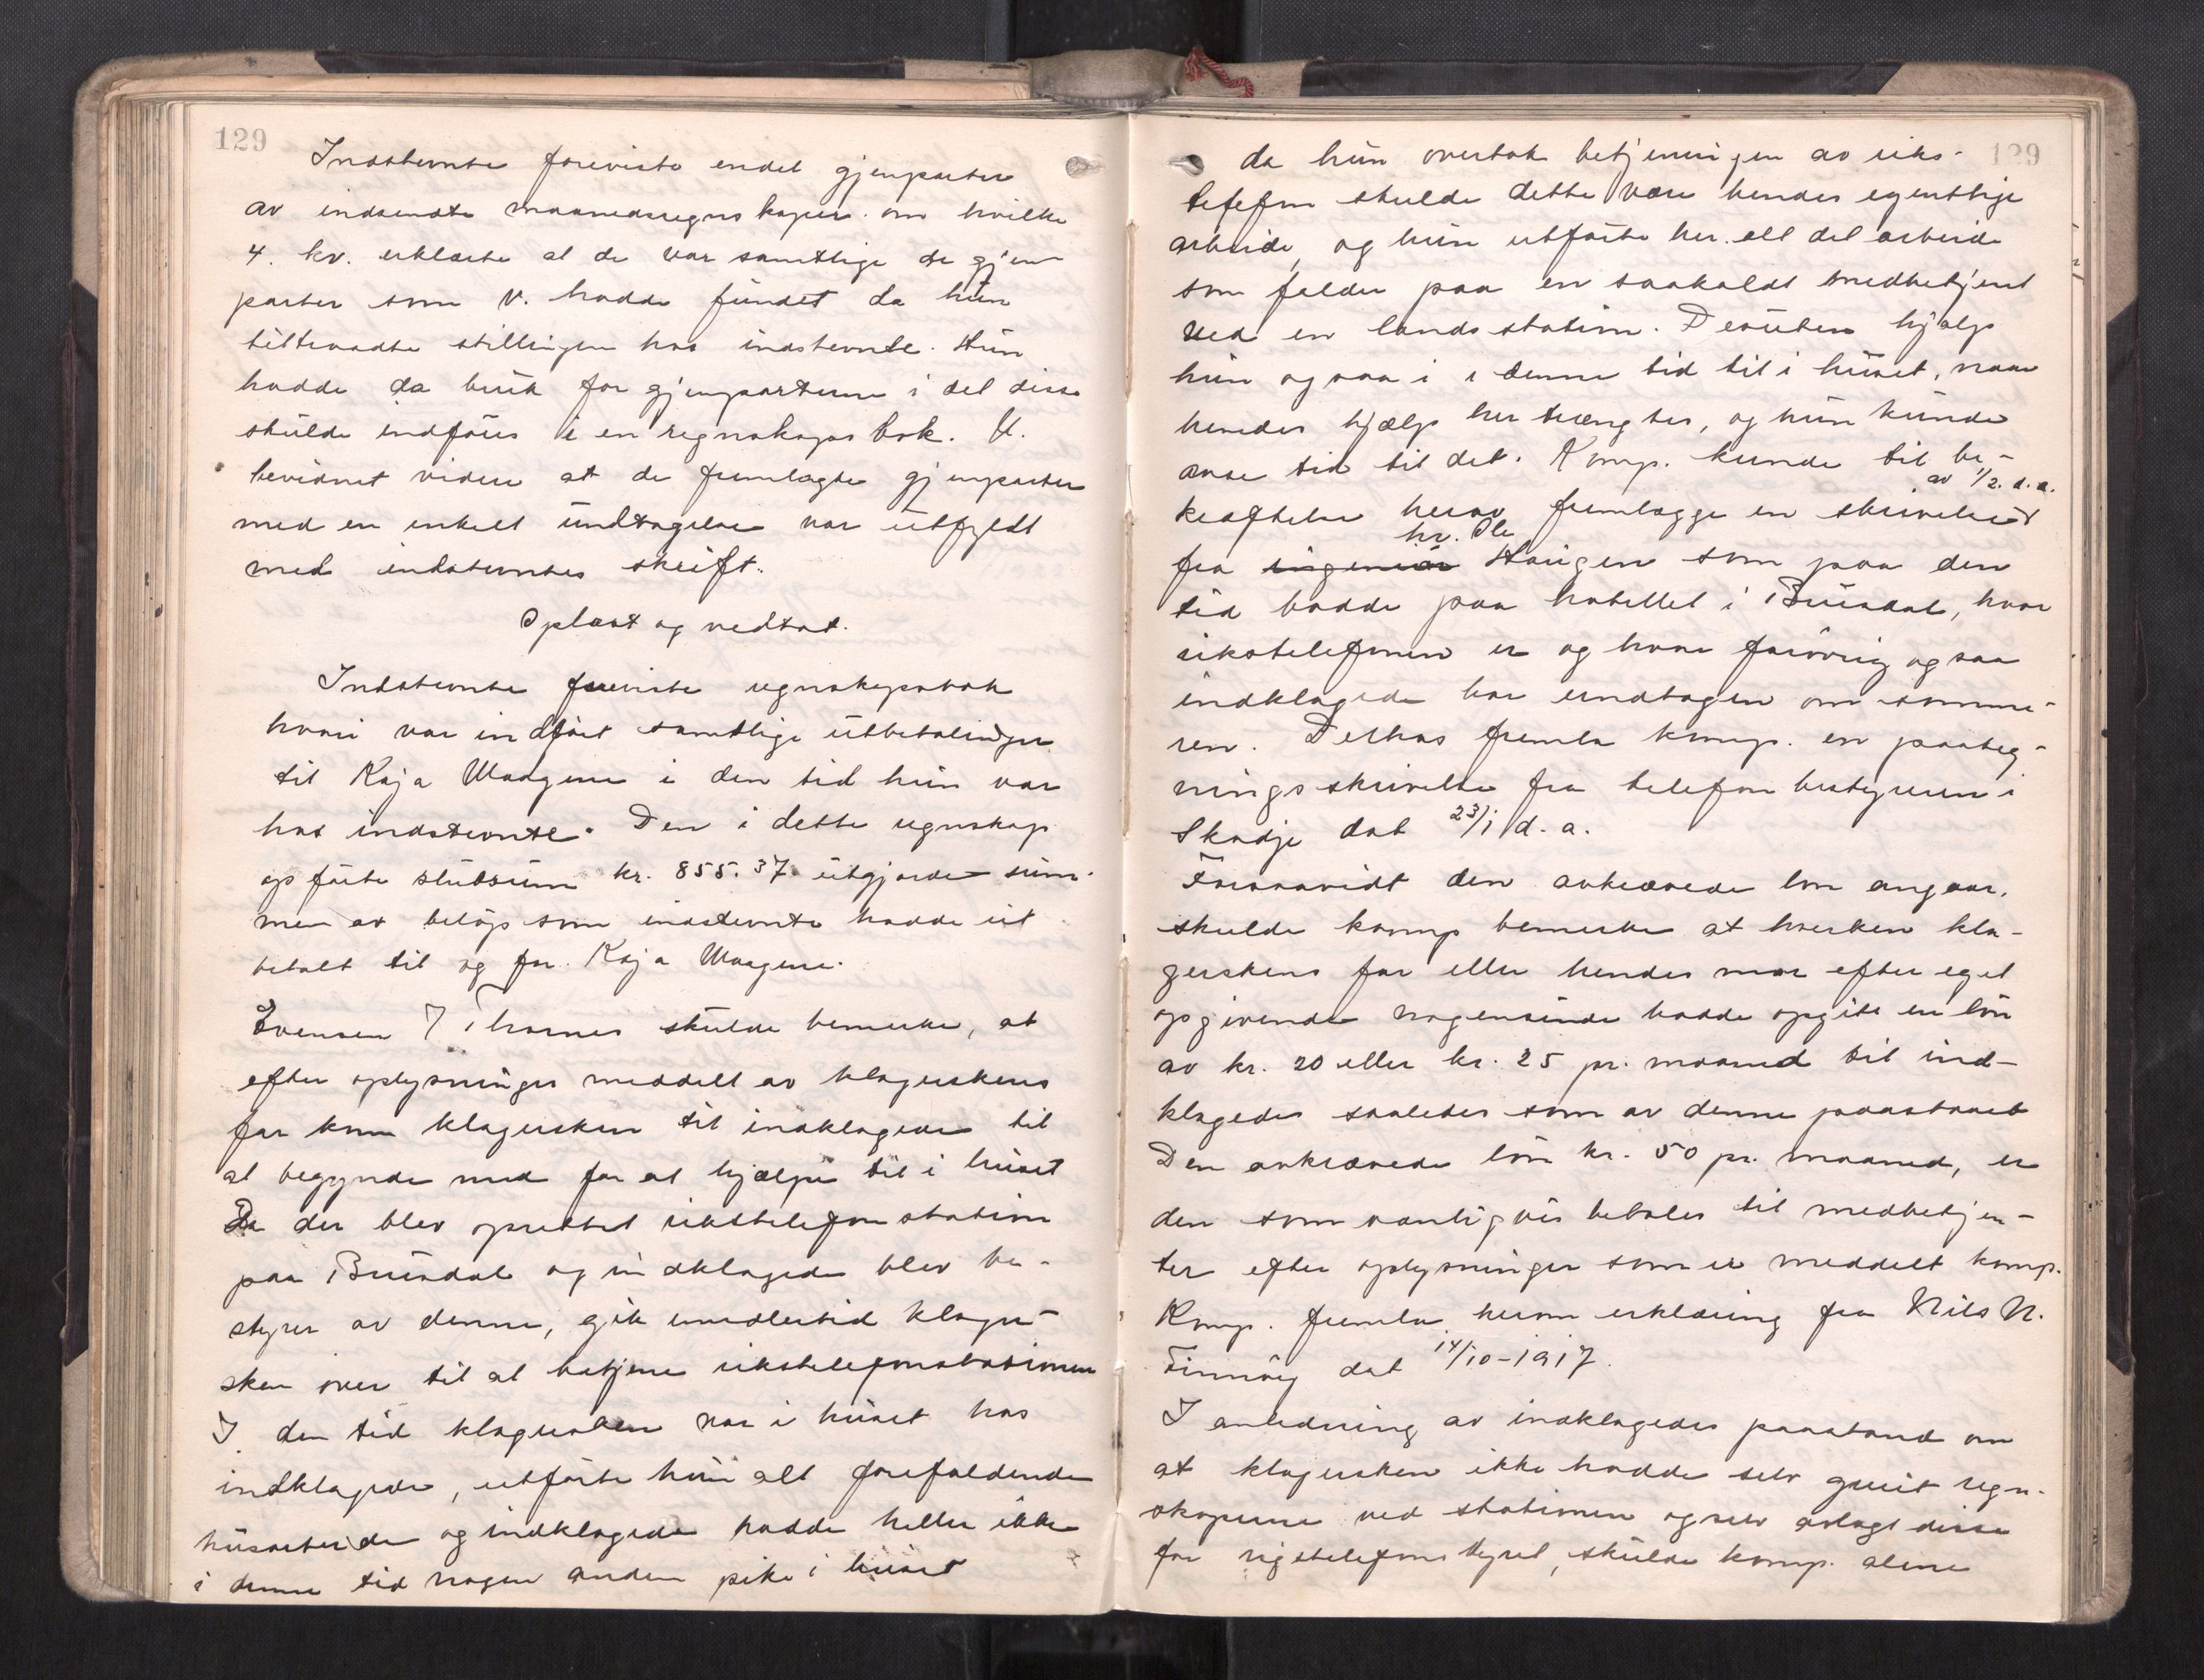 129
Indstevnte foreviste endel gjenparter
av indsendte maanedsregnskaper om hvilke
4. kv. erklærte at de var samtlige de gjen-
parter som v. hadde fundet da hun
tiltraadte stillingen hos indstevnte. Hun
hadde da bruk for gjenparterne i det disse
skulde indføres i en regnskaps bok. V.
bevidnet videre at de fremlagte gjenparter
med en enkelt undtagelse var utfyldt
med indstevntes skrift.
Oplæst og vedtat.
Indstevnte foreviste regnskapsbok
hvori var indført samtlige utbetalinger
til Kaja Waagene i den tid hun var
hos indstevnte. Den i dette regnskap
opførte slutsum kr. 855.37 utgjorde sum-
men av beløp som indstevnte hadde ut
betalt til og for Kaja Waagene.
Evensen Thornes skulde bemerke, at
efter oplysninger meddelt av klagerskens
far kom klagersken til indklagede til
at begynde med for at hjælpe til i huset
Da der blev oprettet rikstelefonstation
paa Bursdal og indklagede blev be-
styrer av denne, gik imidlertid klager-
sken over til at betjene rikstelefonstationen
I den tid klagersken var i huset hos
indklagede, utførte hun alt forefaldende
husarbeide og indklagede hadde heller ikke
i denne tid nogen anden pike i huset
129
da hun overtok betjeningen av riks-
telefon skulde dette være hendes egentlige
arbeide, og hun utførte her alt det arbeide
som falder paa en saakaldt medbetjent
ved en landsstation. Desuten hjalp
hun ogsaa i denne tid til i huset, naar
hendes hjælp her trængtes, og hun kunde
avse tid til det. Komp. kunde til be-
av 1/2. d.a.
kræftelse herav fremlægge en skrivelse
hr. Ole
fra ingeniør Haugen som paa den
tid bodde paa hotellet i Bursdal, hvor
rikstelefonen er og hvor forøvrig ogsaa
indklagede bor undtagen om somme-
ren. Derhos fremla komp. en paateg-
ningsskrivelse fra telefonbestyreren i
Skodje dat 23/1 d.a.
Forsaavidt den avkrævede løn angaar,
skulde komp bemerke at hverken kla-
gerskens far eller hendes mor efter eget
opgivende nogensinde hadde opgitt en løn
av kr. 20 eller kr. 25 pr. maaned til ind-
klagede saaledes som av denne paastaaet
Den avkrævede løn kr. 50 pr. maaned, er
den som vanligvis betales til medbetjen-
ter efter oplysninger som er meddelt komp.
Komp. fremla herom erklæring fra Nils N.
Finnøy dat 14/10-1917.
I anledning av indklagedes paastand om
at klagersken ikke hadde selv greiet regn-
skaperne ved stationen og selv avlagt disse
for rigstelefonstyret, skulde komp. alene